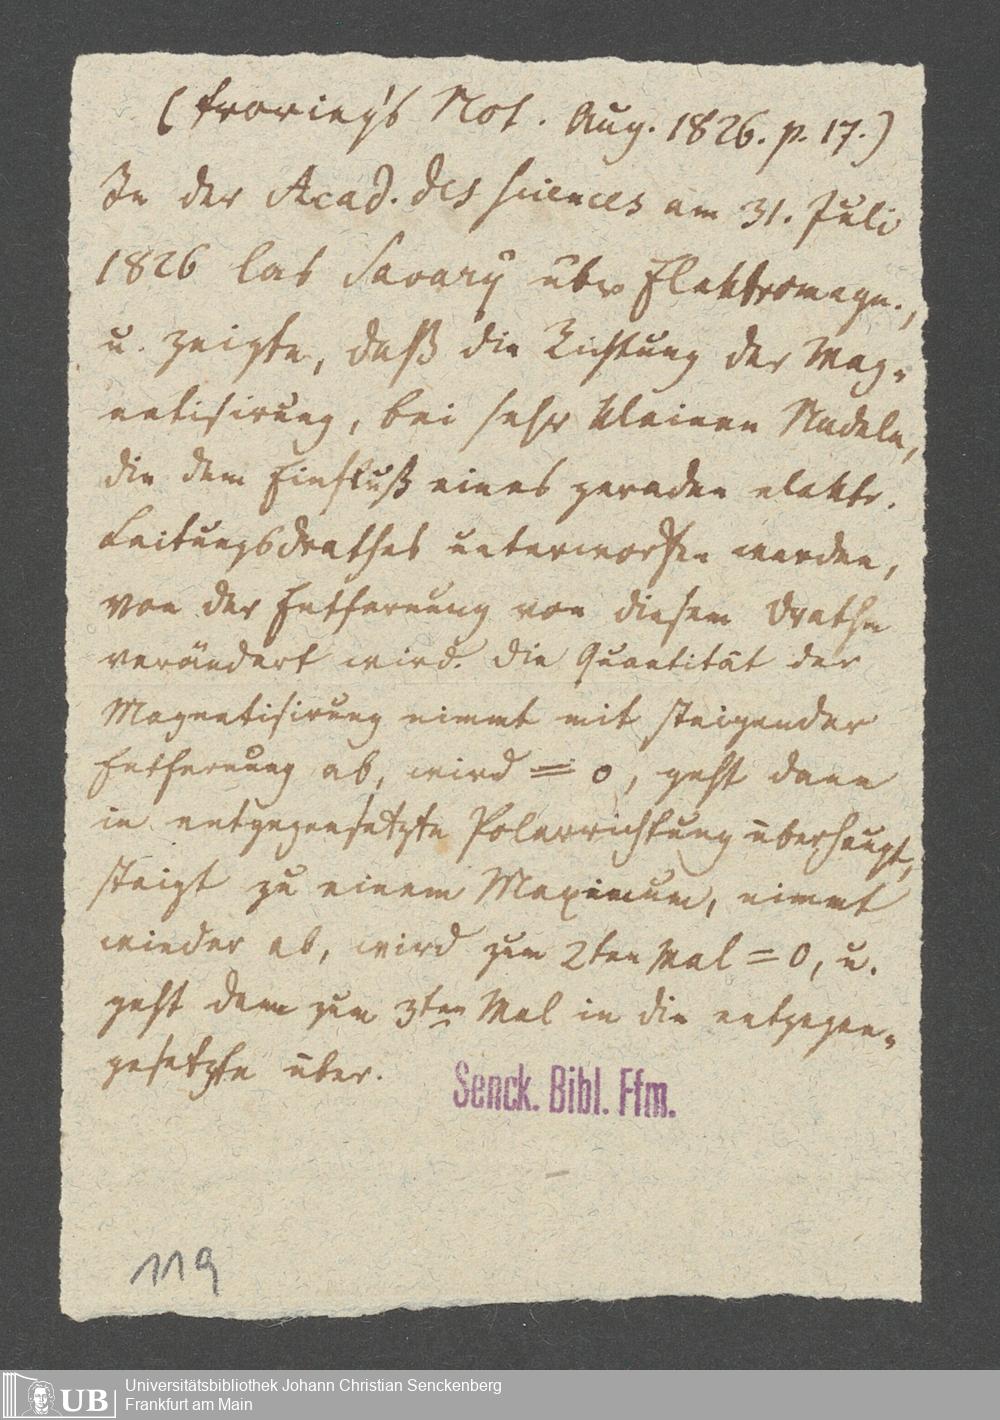 (Froriep's Not. Aug. 1826. p. 17.)
In der Acad. des sciences am 31. Juli
1826 las Savary über Elektromagn.,
u. zeigte, daß die Richtung der Mag-
netisirung, bei sehr kleinen Nadeln,
die dem Einfluß eines geraden elektr.
Leitungsdrathes unterworfen werden,
von der Entfernung von diesem Drathe
verändert wird. Die Quantität der
Magnetisirung nimmt mit steigender
Entfernung ab, wird = 0, geht dann
in entgegensetzte Polarrichtung überhaupt,
steigt zu einem Maximum, nimmt
wieder ab, wird zum 2ten Mal = 0, u.
geht dann zum 3ten Mal in die entgegen-
gesetzte über.
Senck. Bibl. Ffm.
119
UB
Universitätsbibliothek Johann Christian Senckenberg
Frankfurt am Main